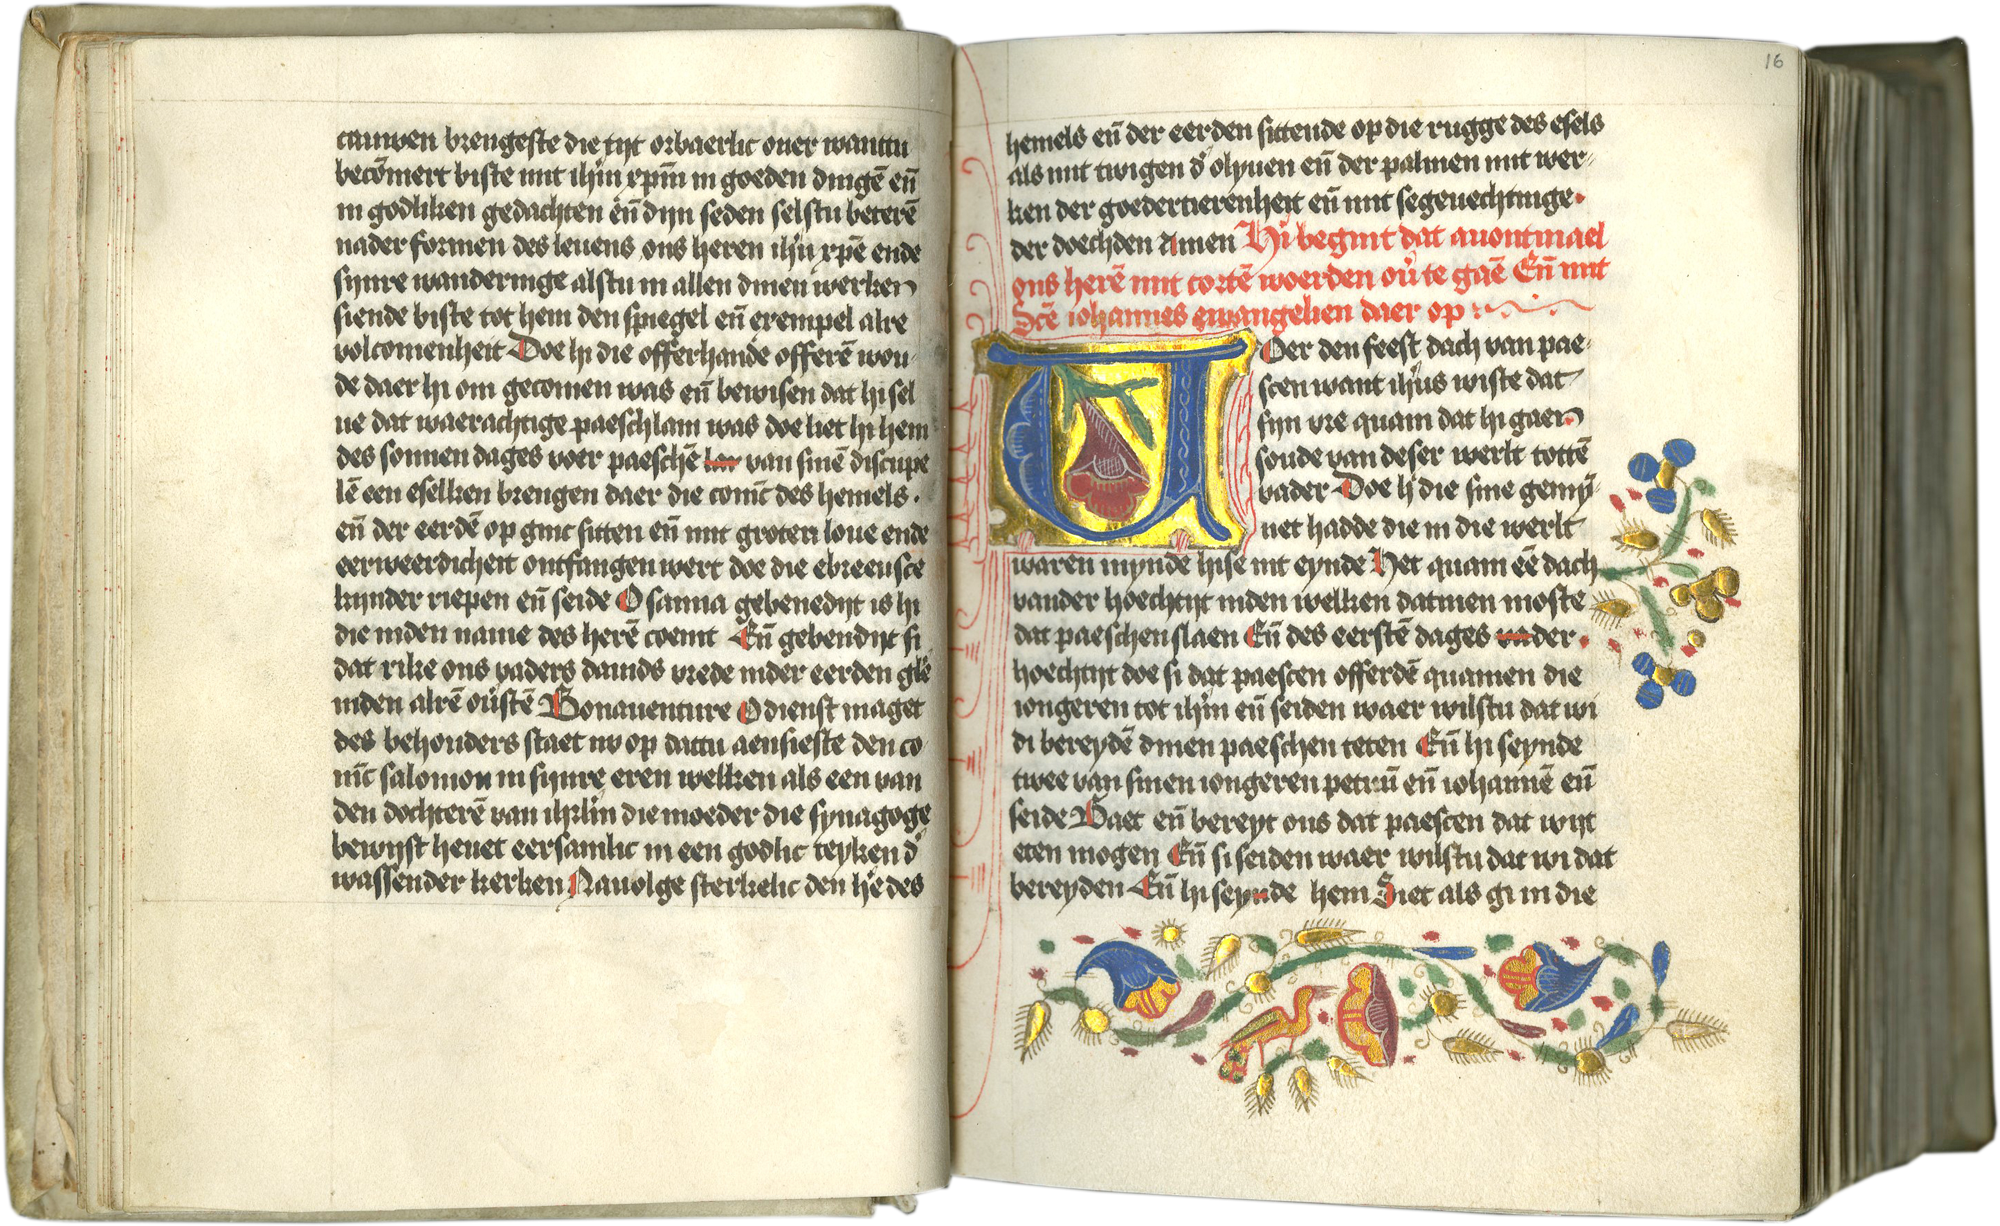 cauwen brengeste die tijt orbaerlic ouer wanttu
becōmert biste mit ihūm xpūm in goeden dingē eñ
in godliken gedachten eñ dijn seden selstu beterē
nader formen des leuens ons heren ihū xpē ende
sijnre wanderinge alstu in allen dinen werken
siende biste tot hem den spiegel eñ exempel alre
volcomenheit Doe hi die offerhande offerē wou-
de daer hi om gecomen was eñ bewisen dat hi sel
ue dat waerachtige paeschlam was doe liet hi hem
des sonnen dages voer paeschē van sinē discipe
lē een eselken brengen daer die conīc des hemels .
eñ der eerdē op ginc sitten eñ mit groten loue ende
eerweerdicheit ontfangen wert doe die ebreeusce
kijnder riepen eñ seide O sanna gebenedijt is hi
die inden name des herē coemt Eñ gebendijt si
dat rike ons vaders dauids vrede inder eerden glē
inden alrē oūstē Bonauenture O dienst maget
des behouders staet nv op dattu aensieste den co-
nīc salomon in sijnre eren welken als een van
den dochterē van ihrlīm die moeder die synagoge
bewijst heuet eersamlic in een godlic teyken dᵒ
wassender kerken Nauolge sterkelic den hē des
16
hemels eñ der eerden sittende op die rugge des esels
als mit twigen dᵒ olyuen eñ der palmen mit wer-
ken der goedertierenheit eñ mit segeuechtinge
der doechden Amen Hi begint dat auontmael
ons herē mit corte woerden oū te gaē Eñ mit
Scē iohannes ewangelien daer op
VOer den feest dach van pae-
scen want ihūs wiste dat
sijn vre quam dat hi gaen
soude van deser werlt tottē
vader Doe hi die sine gemij-
net hadde die in die werlt
waren mynde hise int eynde Het quam eē dach
vander hoechtijt inden welken datmen moste
dat paeschen slaen Eñ des eerstē dages der
hoechtijt doe si dat paescen offerdē quamen die
iongeren tot ihūm eñ seiden waer wilstu dat wi
di bereydē dinen paeschen teten Eñ hi seynde
twee van sinen iongeren petrū eñ iohannē eñ
seide Gaet eñ bereyt ons dat paescen dat wijt
eten mogen Eñ si seiden waer wilstu dat wi dat
bereyden Eñ hi seyde hem Siet als gi in die